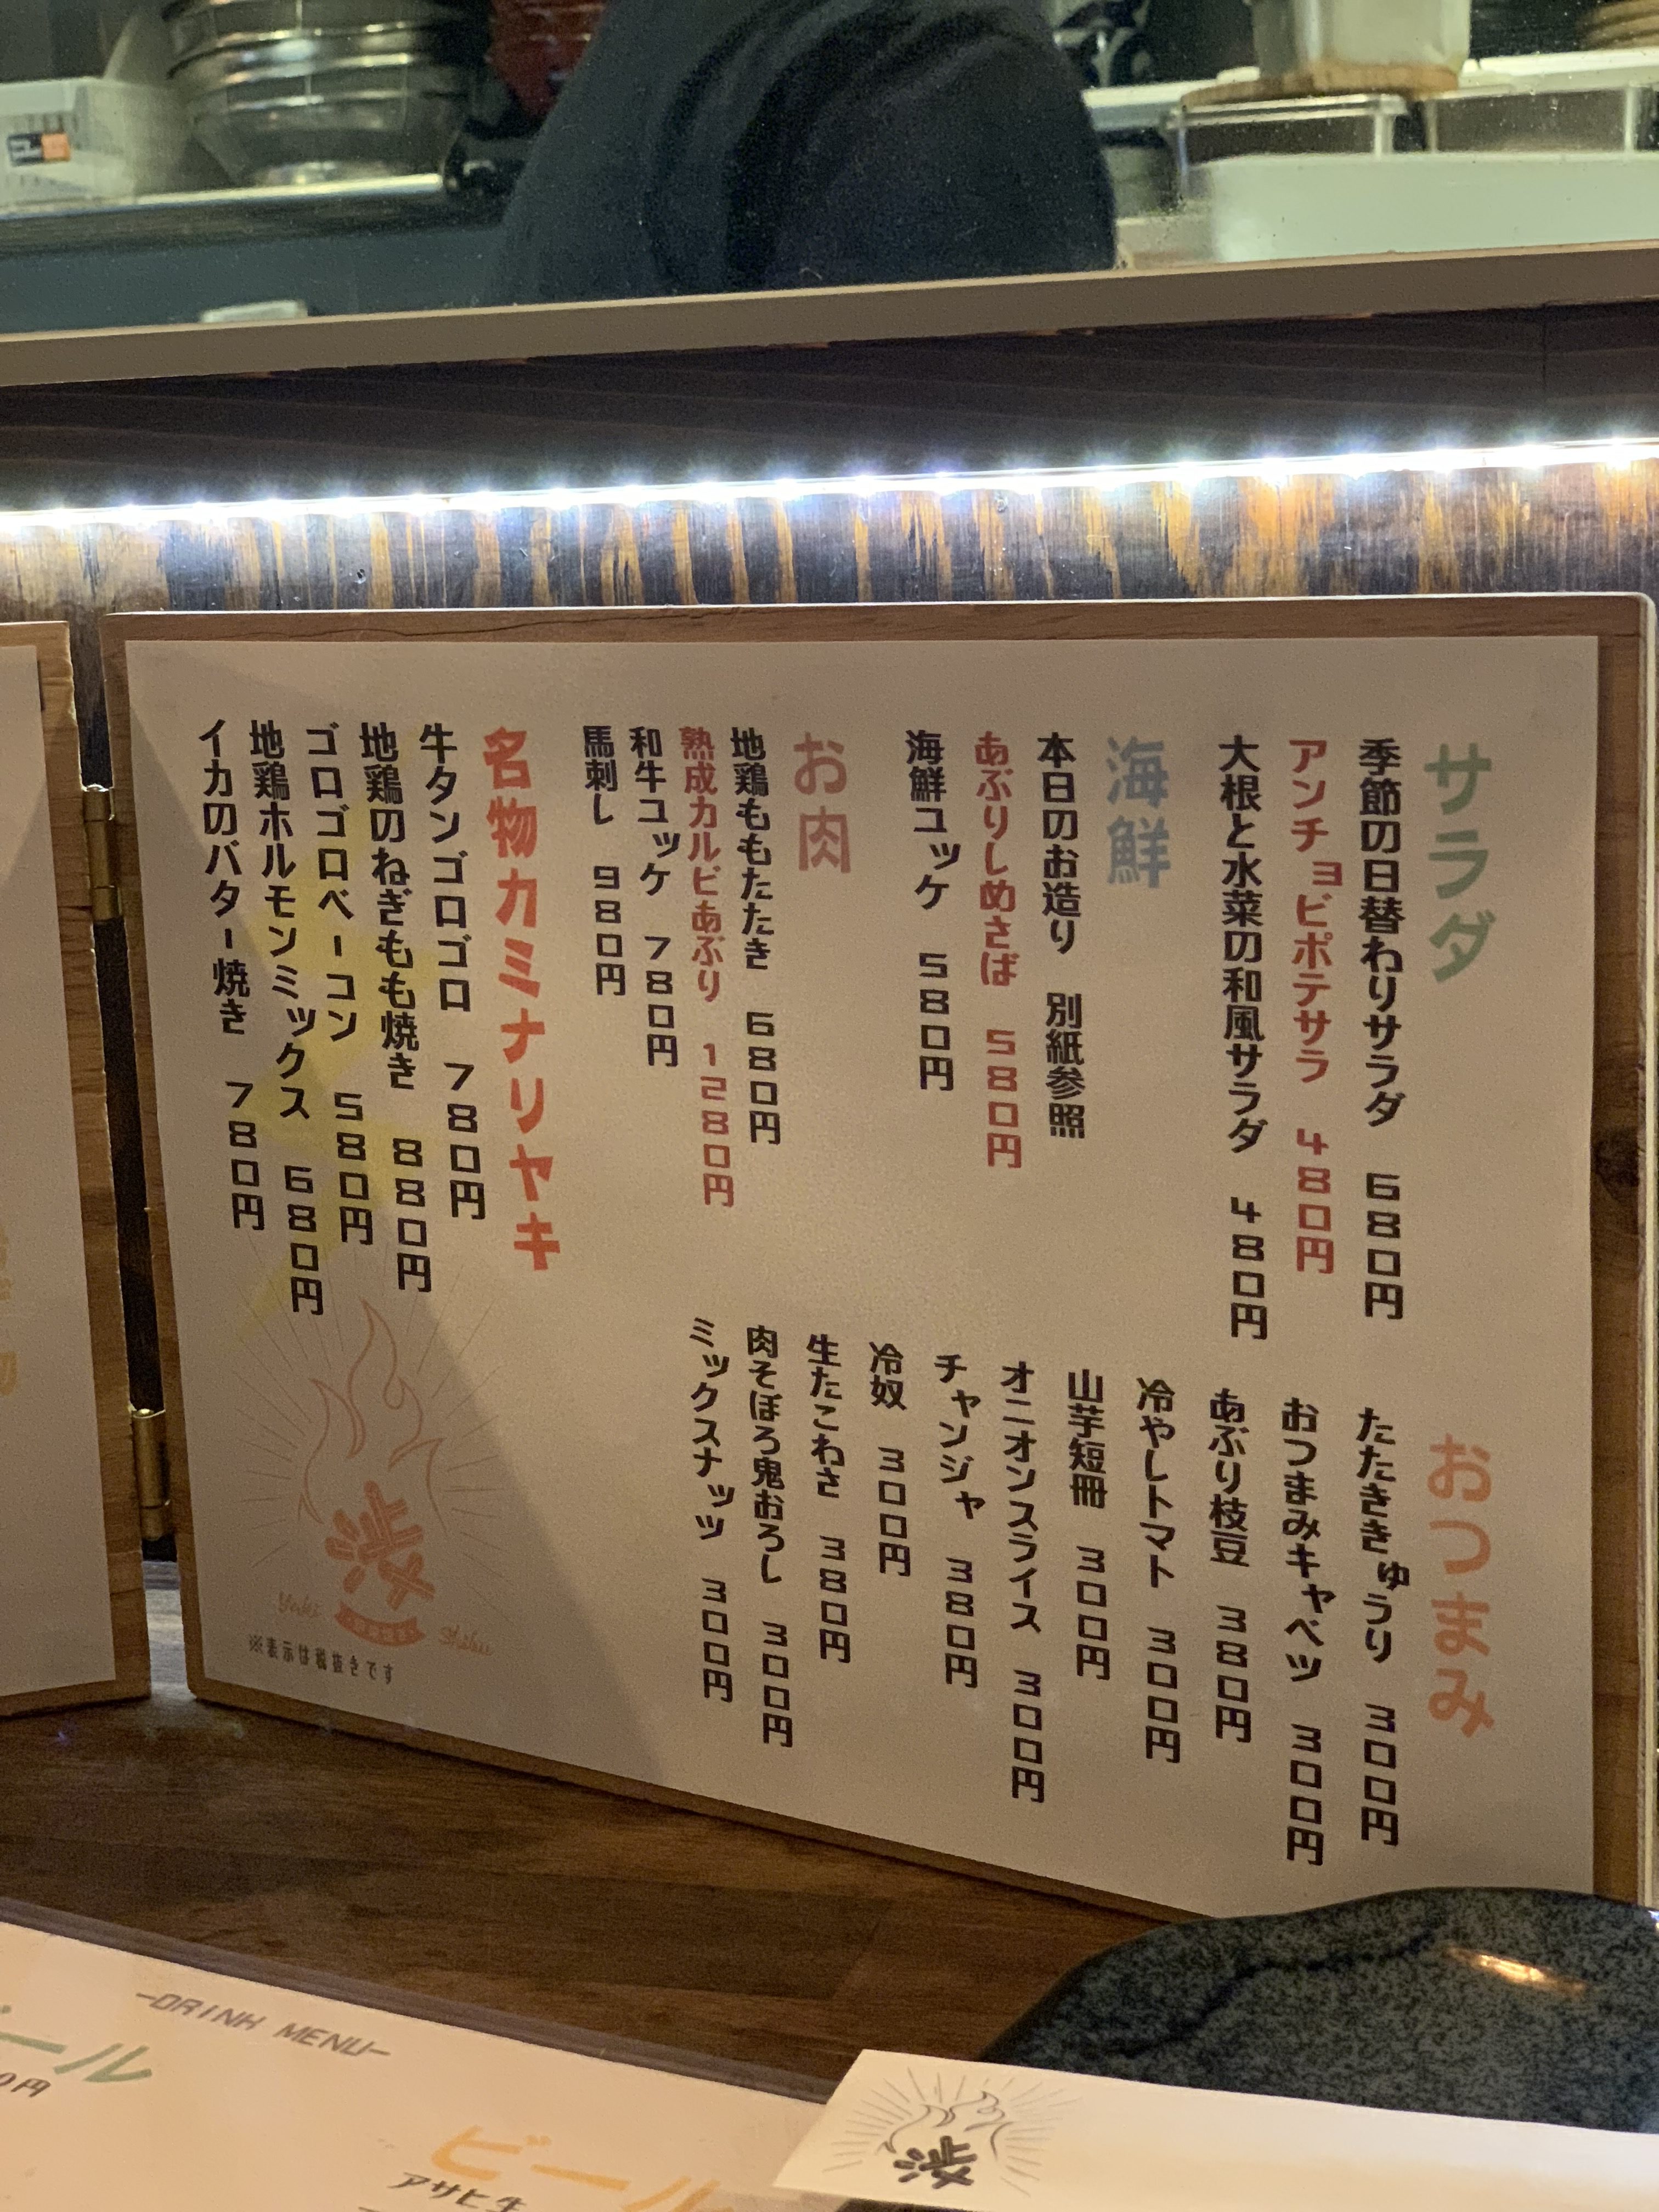 サラダ
季節の日替わりサラダ 680円
アンチョビポテサラ 480円
大根と水菜の和風サラダ 480円
海鮮
本日のお造り 別紙参照
あぶりしめさば 580円
海鮮ユッケ 580円
お肉
地鶏ももたたき 680円
熟成カルビあぶり 1280円
和牛ユッケ 780円
馬刺し 980円
名物カミナリヤキ
牛タンゴロゴロ 780円
地鶏のねぎもも焼き 880円
ゴロゴロベーコン 580円
地鶏ホルモンミックス 680円
イカのバター焼き 780円
おつまみ
たたききゅうり 300円
おつまみキャベツ 300円
あぶり枝豆 380円
冷やしトマト 300円
山芋短冊 300円
オニオンスライス 300円
チャンジャ 380円
冷奴 300円
生たこわさ 380円
肉そぼろ鬼おろし 300円
ミックスナッツ 300円
渋
Yaki Shibu
※表示は税抜きです
-DRINK MENU-
ビール
アサヒ生
渋